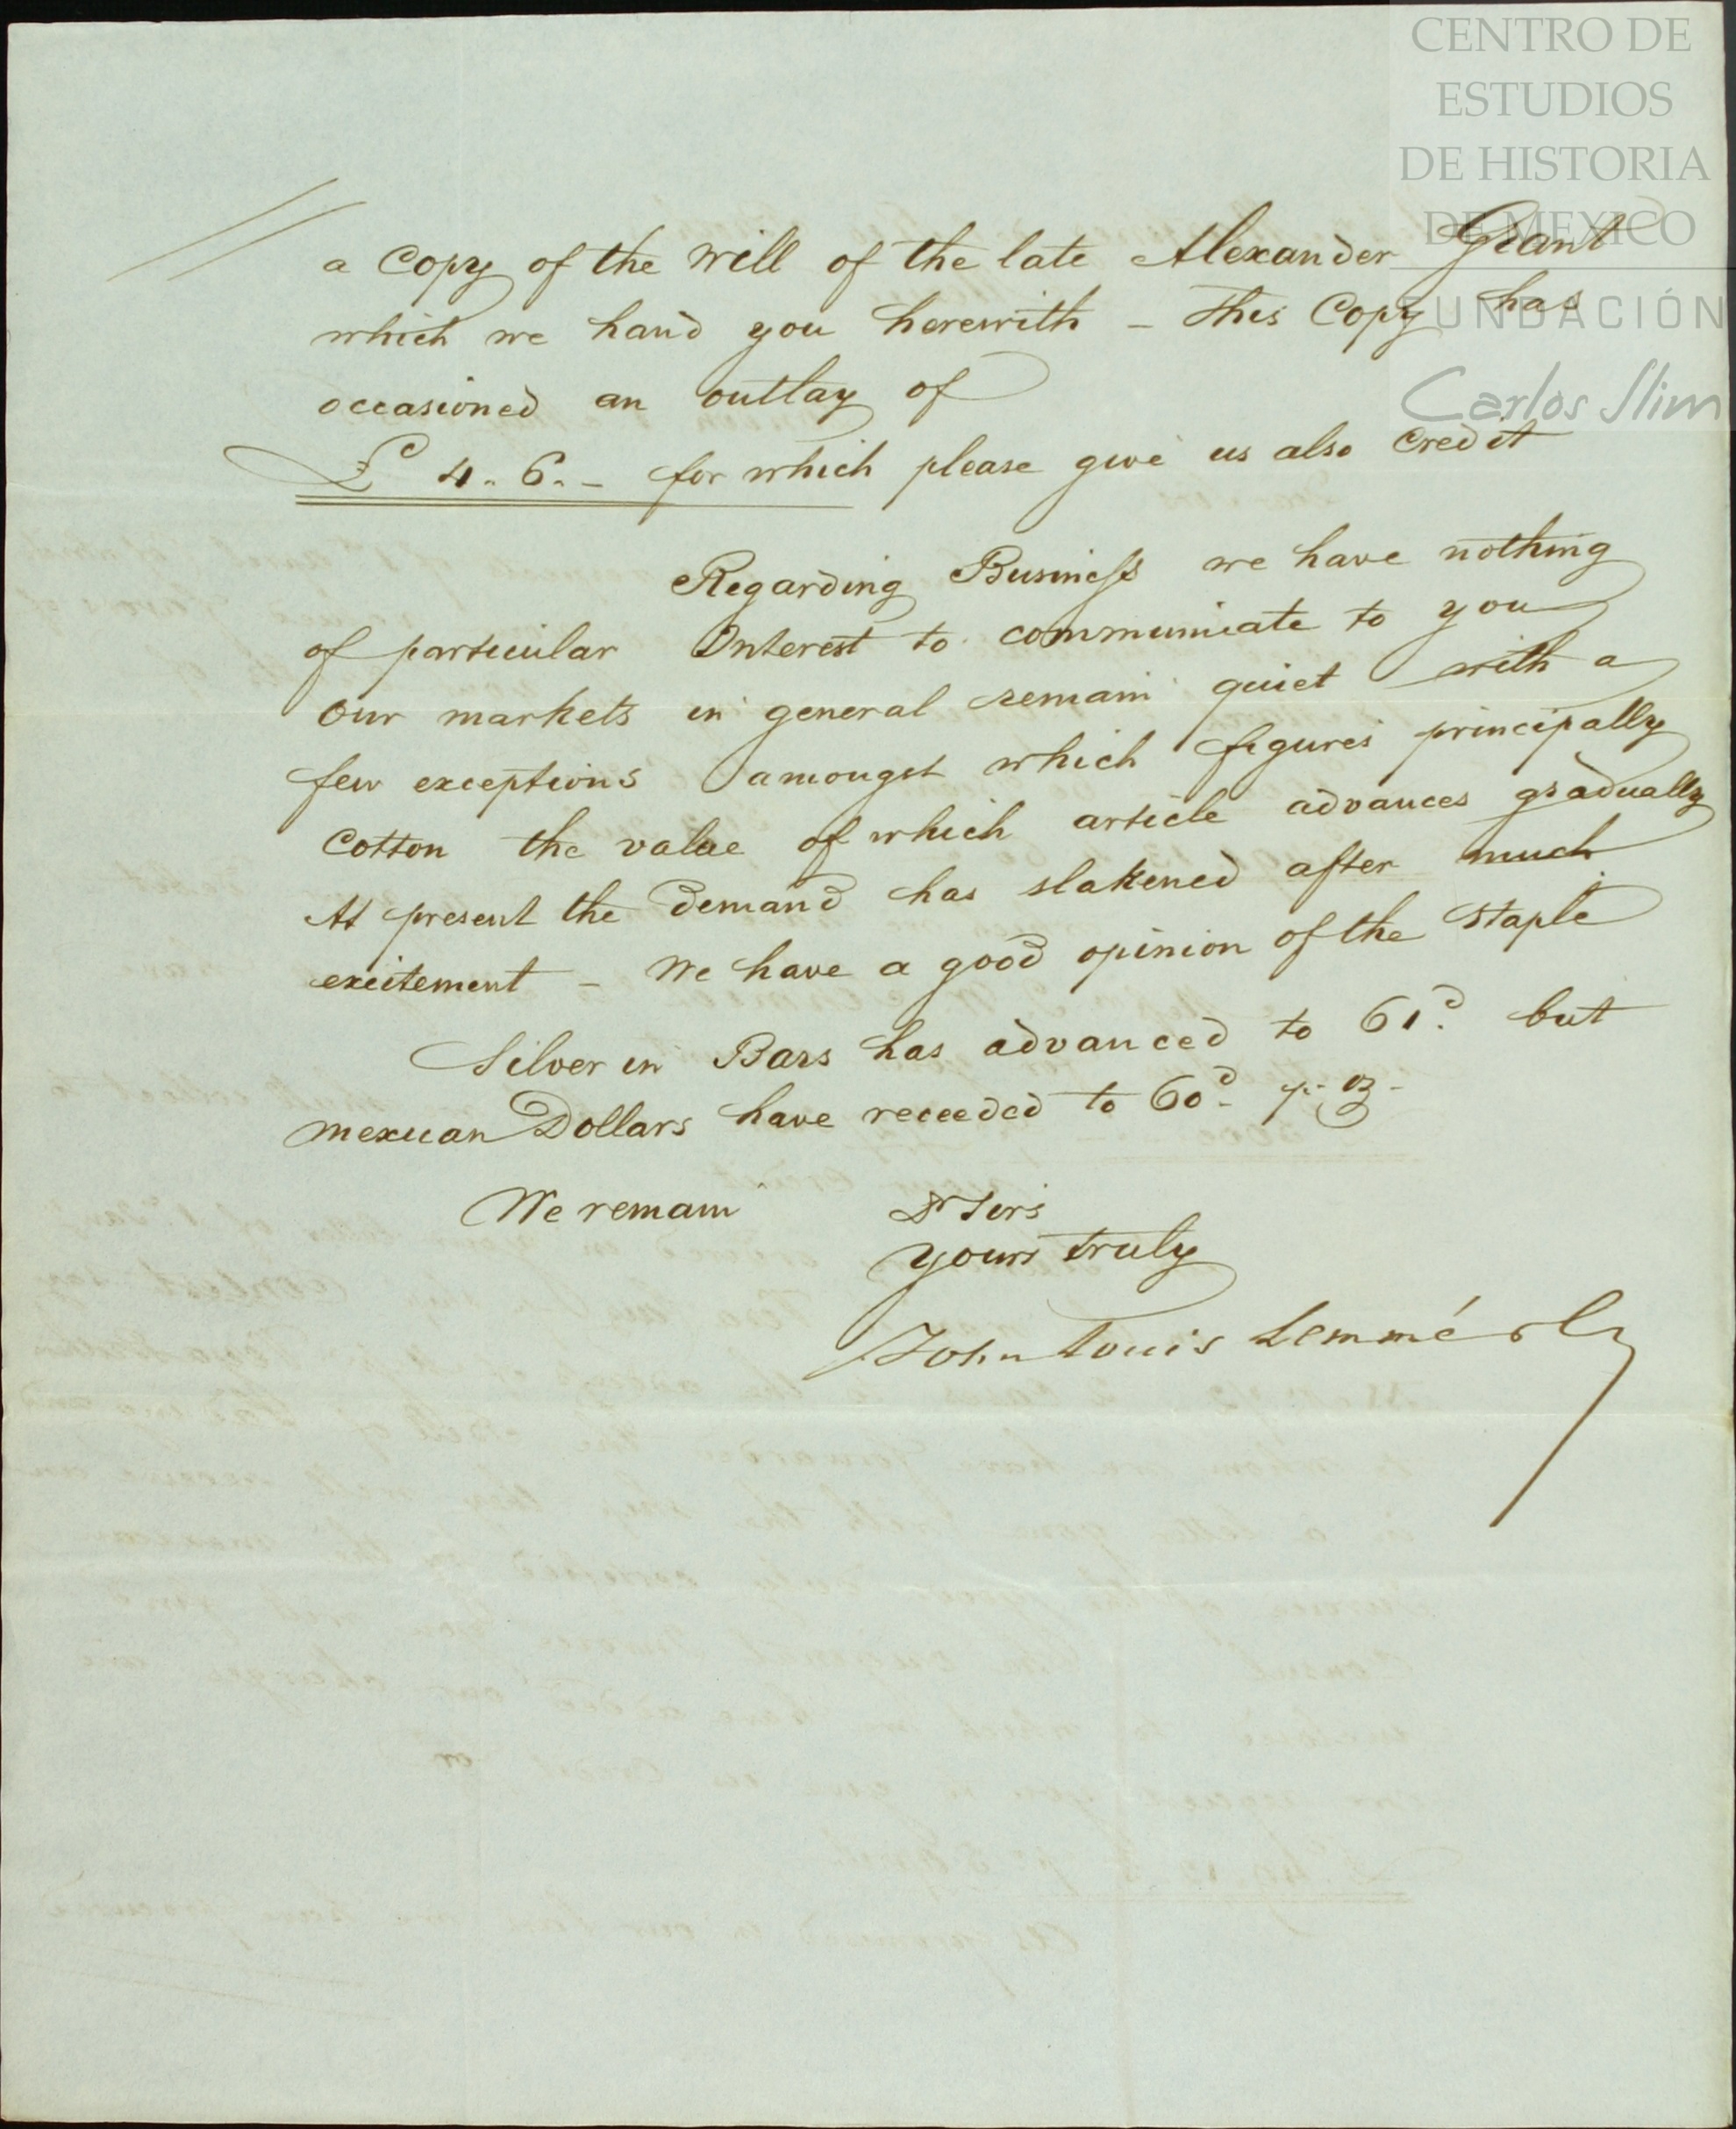 CENTRO DE
ESTUDIOS
DE HISTORIA
DE MEXICO
FUNDACIÓN
Carlos Slim
a Copy of the Will of the late Alexander Grant
which we hand you herewith – This Copy has
occasioned an outlay of
£ 4.. 6.. – for which please give us also Credit
Regarding Business we have nothing
of particular Interest to communicate to you
Our markets in general remain quiet with a
few exceptions amongst which figures principally
Cotton the value of which article advances gradually
At present the Demand has slakened after much
exeitement – We have a good opinion of the Staple
Silver in Bars has advanced to 61d. but
Mexican Dollars have receeded to 60d. p. oz –
We remain Dr Sirs
Yours truly
John Louis Lemmé & Co